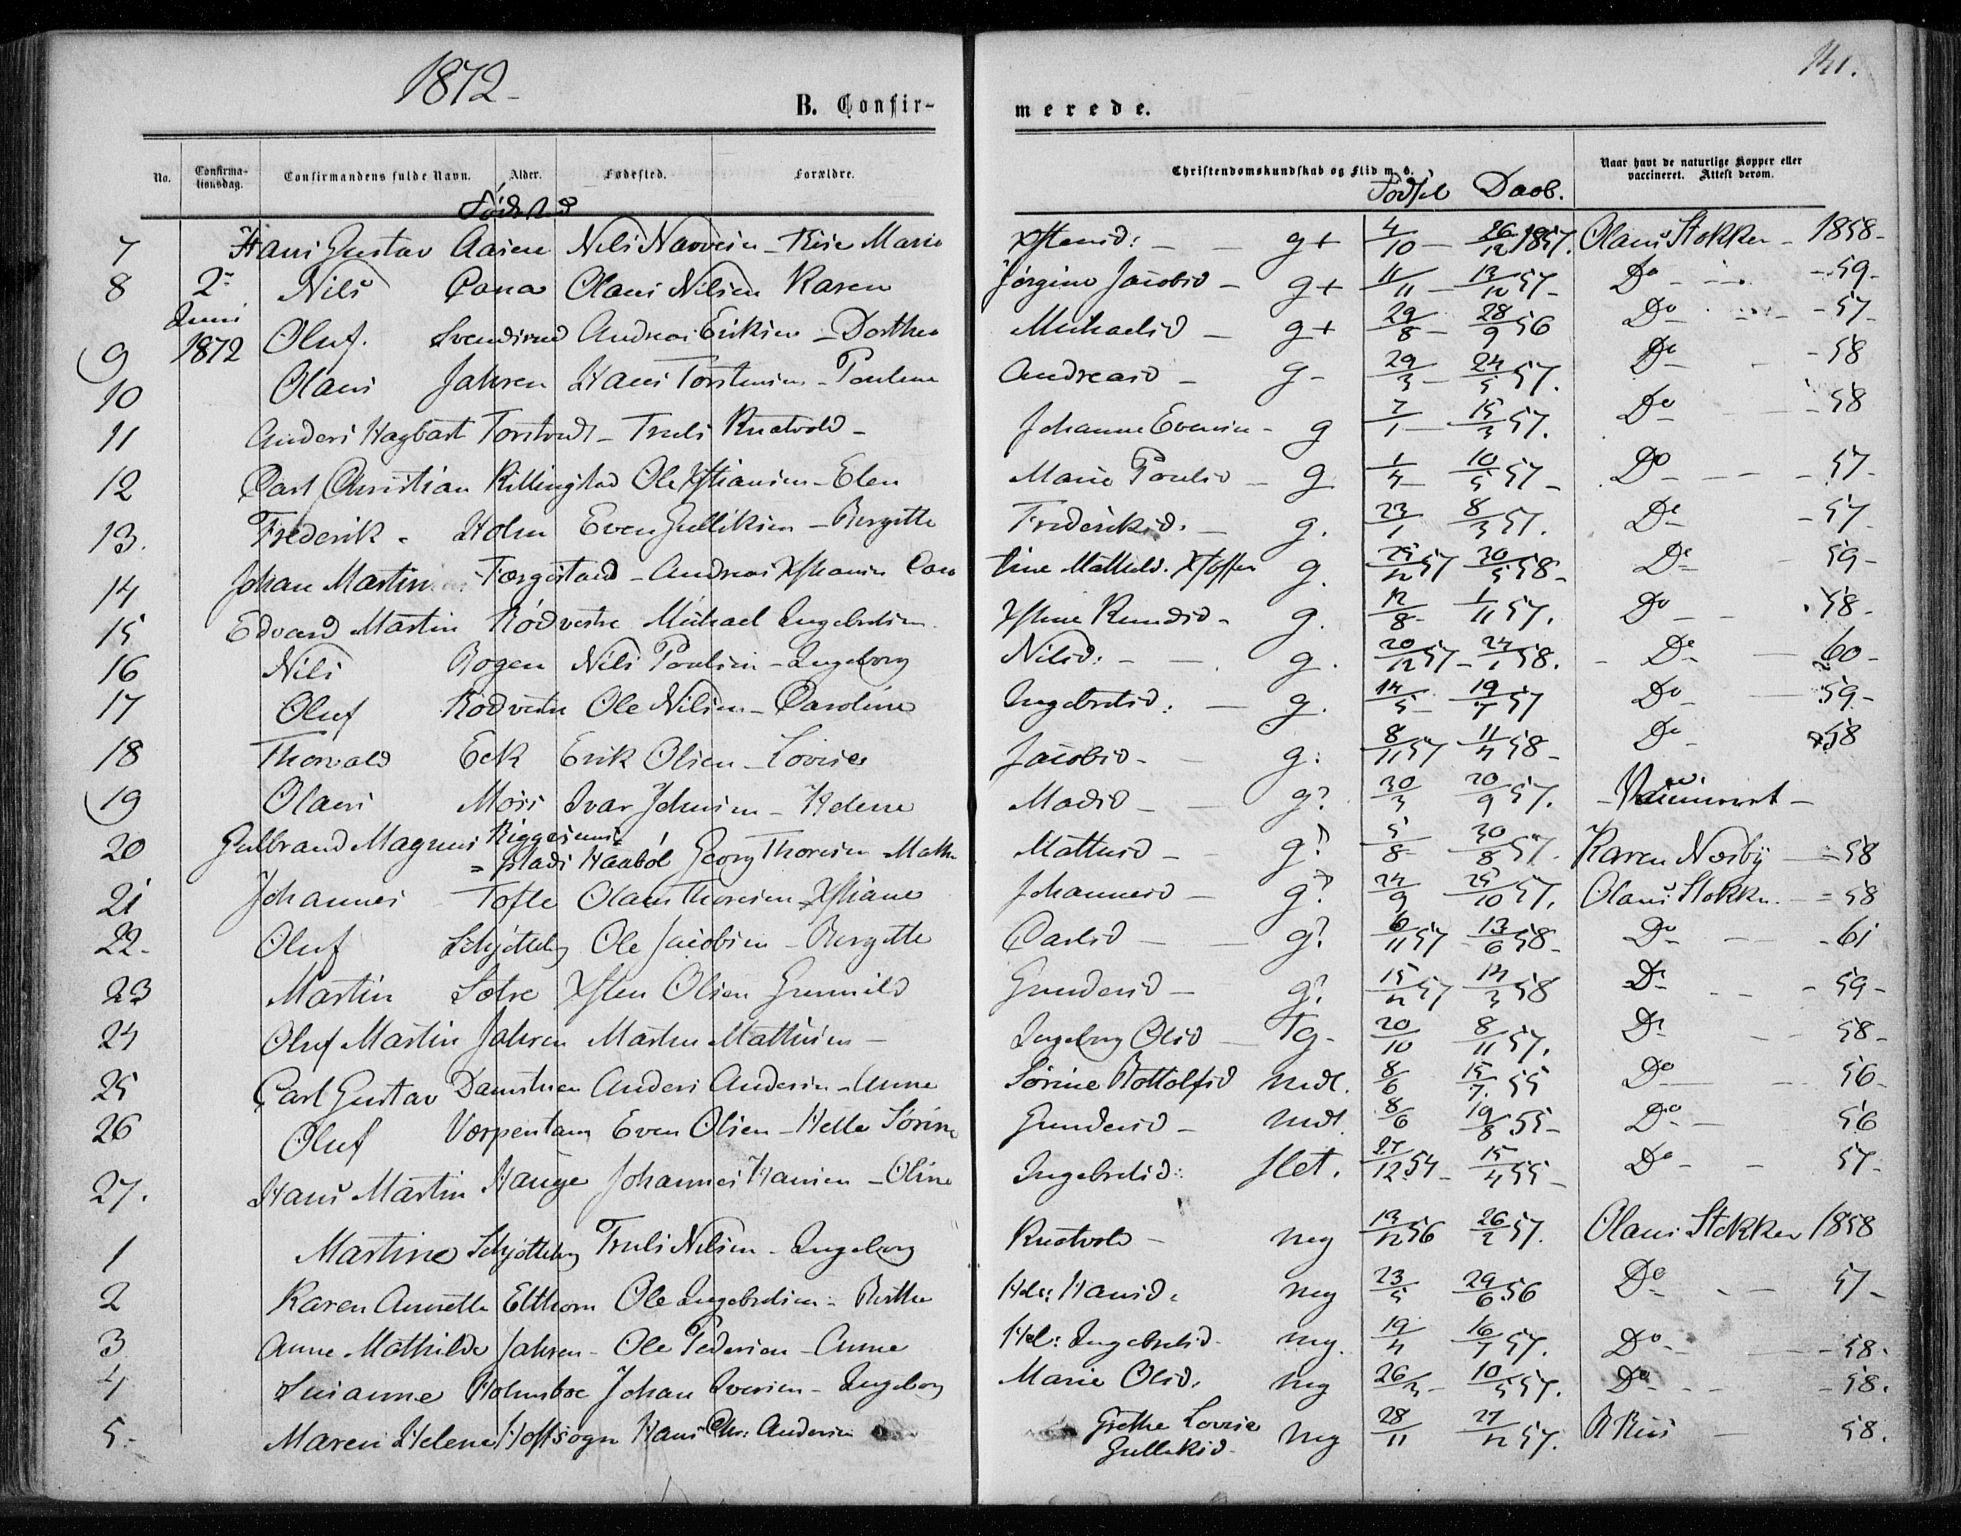 1872
141.
B. Confirmerede.
No. Confirmationsdag. Confirmandens fulde Navn. Alder. Fødested. Forældre. Christendomskundskab og Flid m. v. Naar havt de naturlige Kopper eller vaccineret. Attest derom.
Fødsted Fødsel Daab.
7 Hans Gustav Aasene Nils Narvesen - Else Marie Xstensd: - g+ 4/10 - 26/12 1857. Olaus Stokken - 1858-
8 2den Nils Nilsen Karen Jørgine Jacobsd - g+ 11/11 - 13/12 57- Do - 59-
Juni
9 1872 Oluf. Svendsrud Andreas Eriksen - Dorthea Michaelsd - g+ 29/8 - 28/9 56 Do - 57-
10 Olaus Jahren Hans Torstensen - Pauline Andreasd - g- 29/3 - 24/5 57. Do - 58
11 Anders Hagbart Torstrud - Truls Knatvold - Johanne Evensen - g 7/1 - 15/3 57. Do - 58
12 Carl Christian Killingstad Ole Xstiansen - Elen Marie Poulsd - g 1/4 10/5 57- Do - 57-
13. Frederik - Holm Even Gulliksen - Bergitte Frederiksd. - g. 23/1 8/3 57. Do - 57
14 Johan Martin Færgestad - Andreas Xstiansen Caro line Mathild. Xstoffers g. 25/12 57 30/5 58- Do - 59-
15 Edvard Martin Rødvestre Michael Ingebretsen Xstine Knudsd - g. 12/8 - 1/11 57. Do - 58-
16 Nils Bogen Nils Poulsen - Ingeborg Nilsd: - g. 20/12 57 - 24/1 58. Do - 60-
17 Oluf Rødvestre Ole Nilsen - Caroline Ingebretsd. - g. 14/5 - 19/7 57 Do - 59-
18 Thorvald Eek Erik Olsen - Lovise Jacobsd - g: 8/11 57 11/4 58- Do 58
19 Olaus Moss Ivar Johnsen - Helene Madsd - g? 30/3 20/9 57. - Vaccineret -
20 Gulbrand Magnus Haabøl Georg Thoresen - Mathe Mathisd - g? 5/8 - 30/8 57. Karen Næsby - 58
21 Johannes Tofte Olaus Thoresen - Xstiane Johannesd - g? 24/9 25/10 57. Olaus Stokken - 58
22- Oluf Schjølleby Ole Jacobsen - Bergitte Carlsd - g? 6/11 57 13/6 58- Do - 61
23 Martin Sotre Xsten Olsen Gunnild Gundersd - g? 15/12 57 14/3 58 Do - 59-
24 Oluf Martin Jahren Marten Mathisen - Ingeborg Olsd - Tg- 20/10 8/11 57. Do - 58-
25 Carl Gustav Damstuen Anders Andersen - Anne Sørine Bottolfsd mdl. 8/6 15/7. 55 Do - 56-
26 Oluf Værpentang Even Olsen - Helle Sørine Gundersd - mdl. 8/6 19/8 55- Do - 56
27. Hans Martin Hauge Johannes Hansen - Oline Ingebretsd: slet. 27/12 54- 15/4 55- Do - 57-
1 Martine Schjølleby Truls Nilsen - Ingeborg Knatvold - mg 13/12 56 26/2 57. Olaus Stokken 1858
2 Karen Annette Elthorn Ole Ingebretsen - Berthe Hel: Hansd. mg 23/5 29/6 56 Do - 57-
3 Anne Mathilde Jahren - Ole Pedersen - Anne Hel: Ingebretsd. mg. 19/4 16/7 57. Do - 58-
4 Susanne Holmsboe Johan Iversen - Ingeborg Marie Olsd. mg 26/3 - 10/5 57. Do - 58.
5- Maren Helene Hoffsogn Hans Chr: Andersen Grethe Lovise Gulliksd - mg 28/11 27/12 57. B Riis - 58.